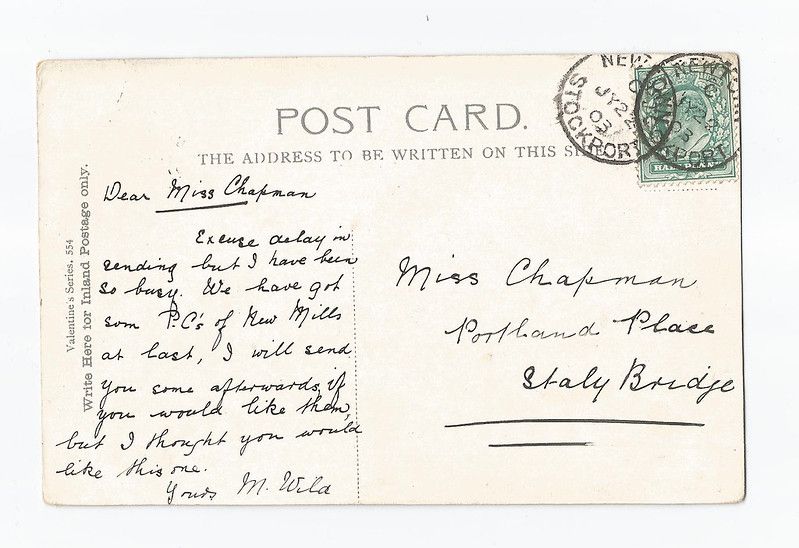 POST CARD.
THE ADDRESS TO BE WRITTEN ON THIS
NEW
STOCKPORT
JY 22
03
Valentine's Series, 554
Write Here for Inland Postage only.
Dear Miss Chapman
Excuse delay in
sending but I have been
so busy. We have got
som P.C's of New Mills
at last, I will send
you some afterwards, if
you would like them,
but I thought you would
like this one.
Yours M. Wild
Miss Chapman
Portland Place
Staly Bridge